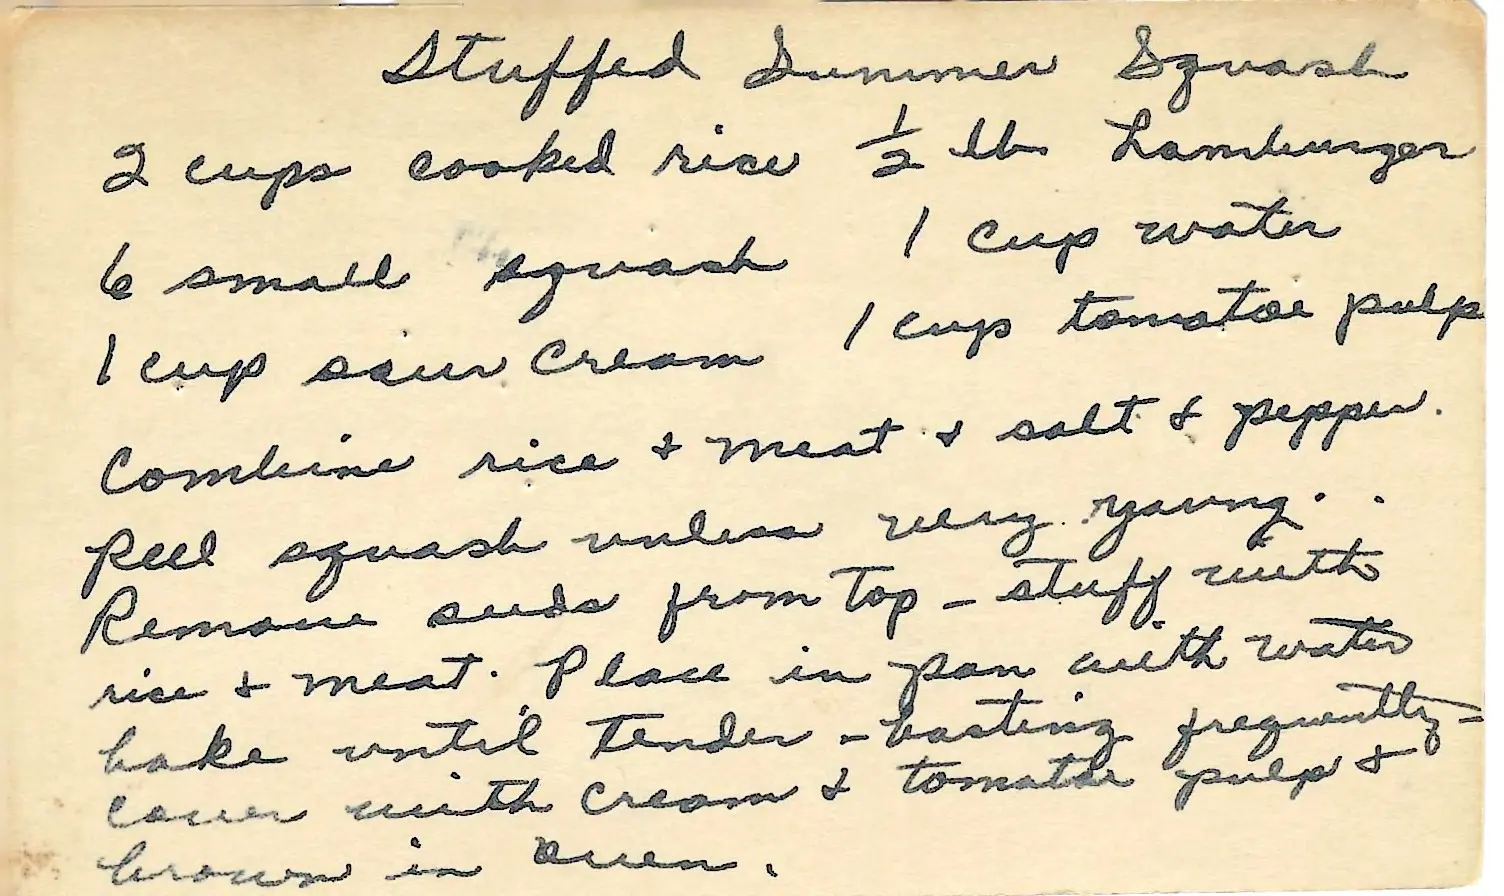 Stuffed Summer Squash
2 cups cooked rice 1/2 lb. hamburger
6 small squash 1 cup water
1 cup sour cream 1 cup tomatoe pulp
Combine rice & meat & salt & pepper.
Peel squash unless very young.
Remove seeds from top - stuff with
rice & meat. Place in pan with water
bake until tender - basting frequently -
cover with cream & tomatoe pulp &
brown in oven.